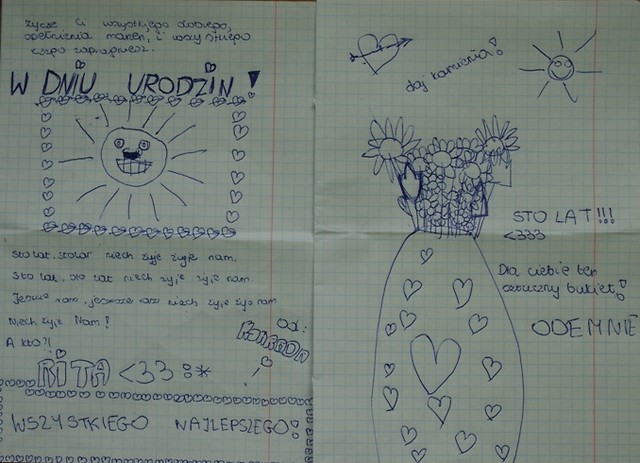 życzę Ci wszystkiego dobrego,
spełnienia marzeń, i wszystkiego
czego zapragniesz.
W DNIU URODZIN!
Sto lat, sto lat niech żyje żyje nam.
Sto lat, sto lat niech żyje żyje nam.
Jeszcze raz, jeszcze raz niech żyje żyje nam
Niech żyje Nam!
A kto?!
RITA <33 :*
Od:
WSZYSTKIEGO NAJLEPSZEGO!
daj kamienia!
STO LAT!!!
<333
Dla ciebie ten
sztuczny bukiet!
ODEMNIE